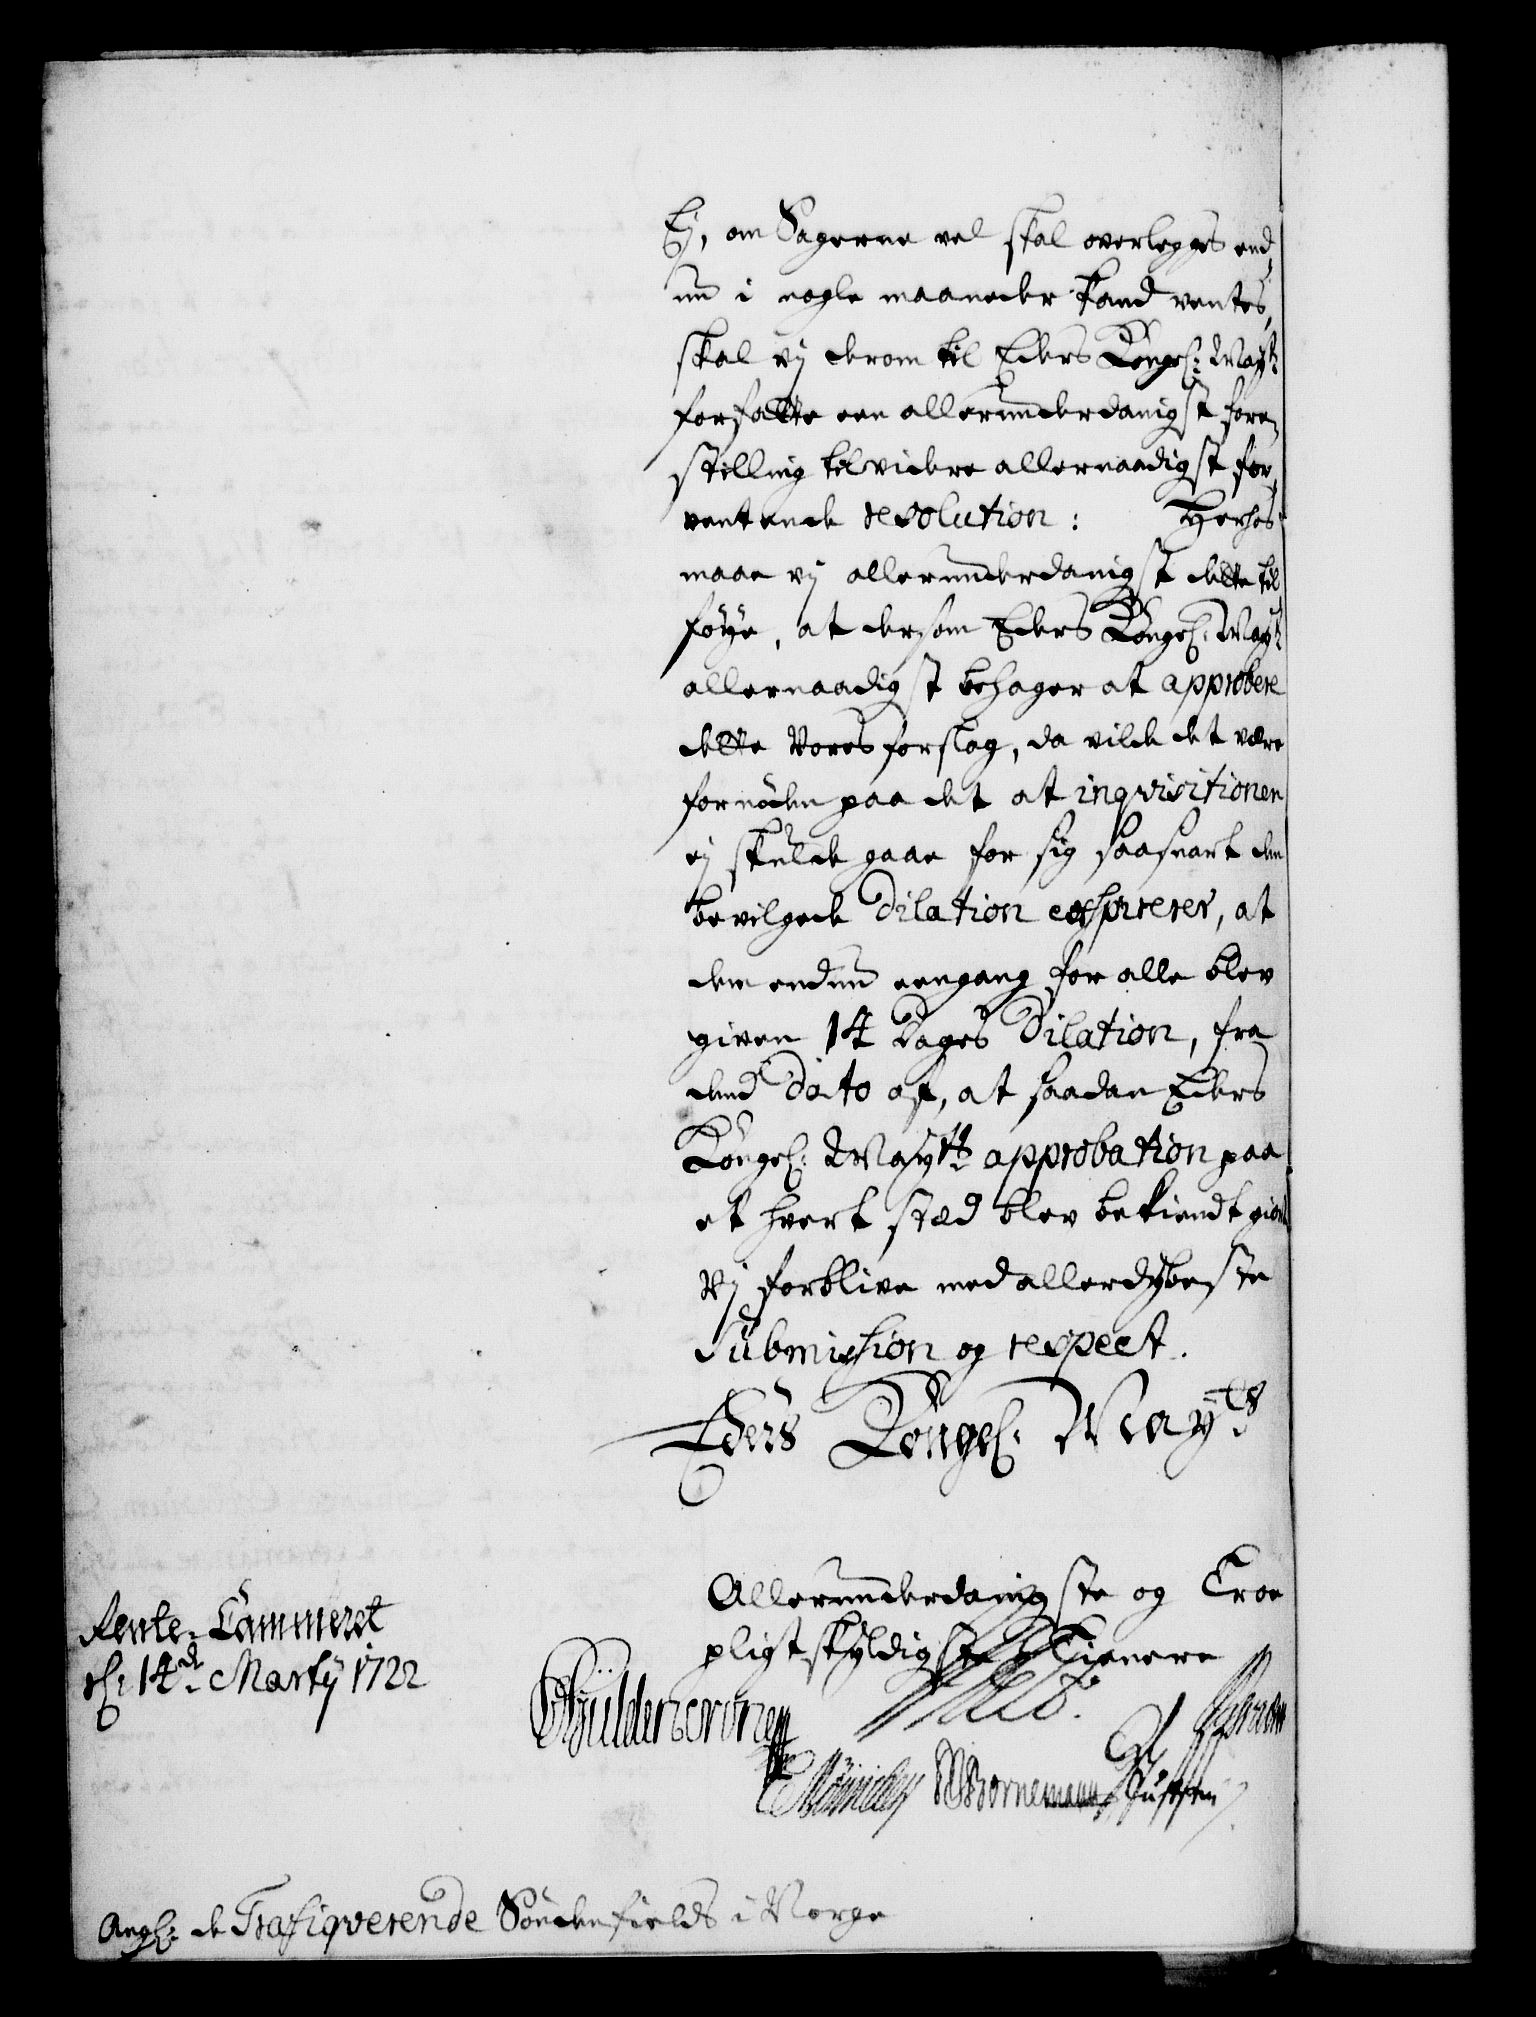 Ej, om Sagerne vel skal overlegges end,
nu i nogle maaneder kand ventes,
skal vj derom til Eders Kongel: Mayt:
forfatte een allerunderdanigst fore,
stilling til videre allernaadigst for,
ventende resolution: Herhos
maae vj allerunderdanigst dette til,
föye, at dersom Eders Kongel: Mayt:
allernaadigst behager at approbere
dette Vores forslag, da vilde det være
fornöden paa det at inqvisitionen
ej skulde gaae for sig saasnart den
bevilgede Dilation exspirerer, at
dem endnu eengang for alle blev
given 14 dages Dilation, fra
dend Dato af, at saadan Eders
Kongel: Mayts: approbation paa
et hvert stæd blev bekiendt giort
Vj forblive med allerdybeste
Submission og respect.
Eders Kongel: Mayts
Allerunderdanigste og Troe
pligtskyldigste Tienere
Rente-Cammeret
d: 14de Martij 1722
CGüldencrone
WBornemann
Ang: de Trafiqverende Söndenfields i Norge